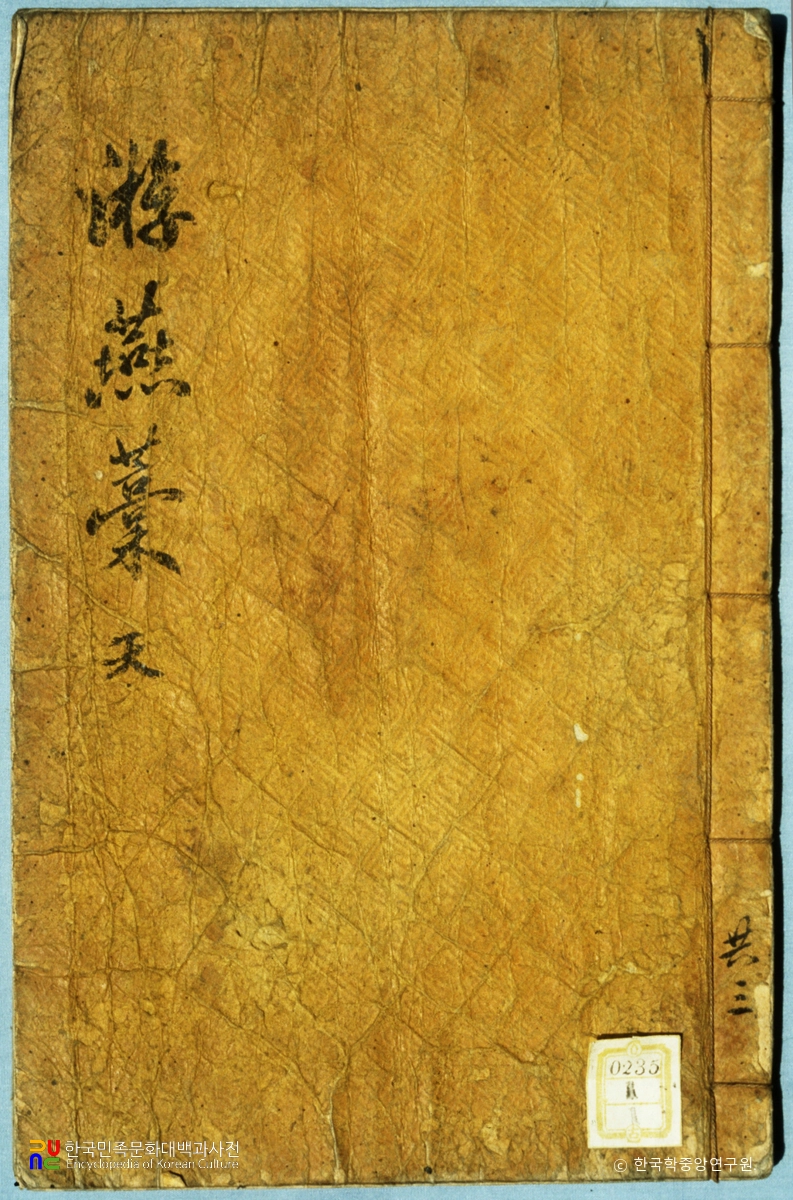 游燕藁 天
共三
0235
한국민족문화대백과사전
Encyclopedia of Korean Culture
© 한국학중앙연구원